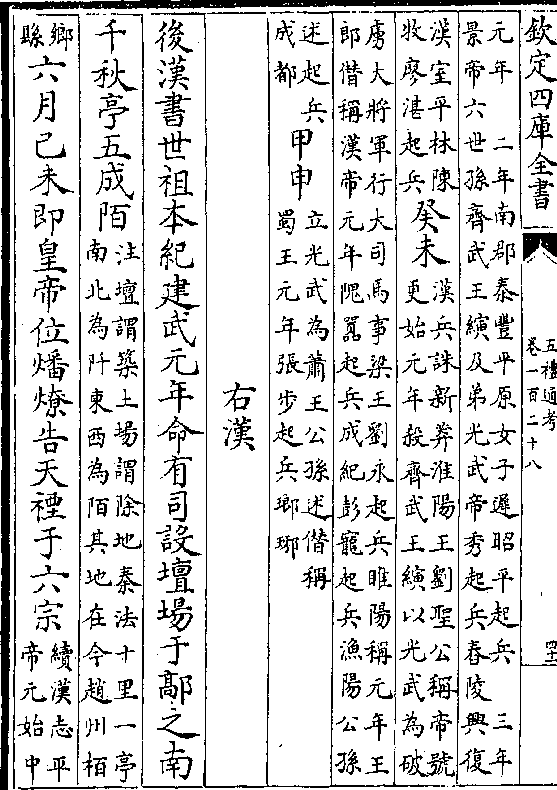 欽定四庫全書
五禮通考
卷一百二十八
四十二
元年　二年南郡秦豐平原女子遲昭平起兵　三年
景帝六世孫齊武王縯及弟光武帝秀起兵舂陵興復
漢室平林陳
牧廖湛起兵
癸未
漢兵誅新莽淮陽王劉聖公稱帝號
更始元年殺齊武王縯以光武為破
虜大將軍行大司馬事梁王劉永起兵睢陽稱元年王
郎僭稱漢帝元年隗囂起兵成紀彭寵起兵漁陽公孫
述起兵
成都
甲申
立光武為蕭王公孫述僭稱
蜀王元年張步起兵瑯琊
右漢
後漢書世祖本紀建武元年命有司設壇場于鄗之南
千秋亭五成陌
注壇謂築土場謂除地秦法十里一亭
南北為阡東西為陌其地在今趙州栢
鄉
縣
六月己未即皇帝位燔燎告天禋于六宗
續漢志平
帝元始中